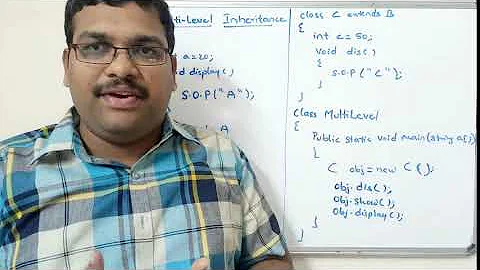 lti-Level Inheritance
t a=20;
d display()
S.O.P("A");
A
class C extends B
{
int c=50;
void dis()
{
S.O.P("C");
}
}
Class MultiLevel
{
Public static void main(string a[])
{
C obj=new C();
obj.dis();
Obj.show();
Obj.display();
}
}